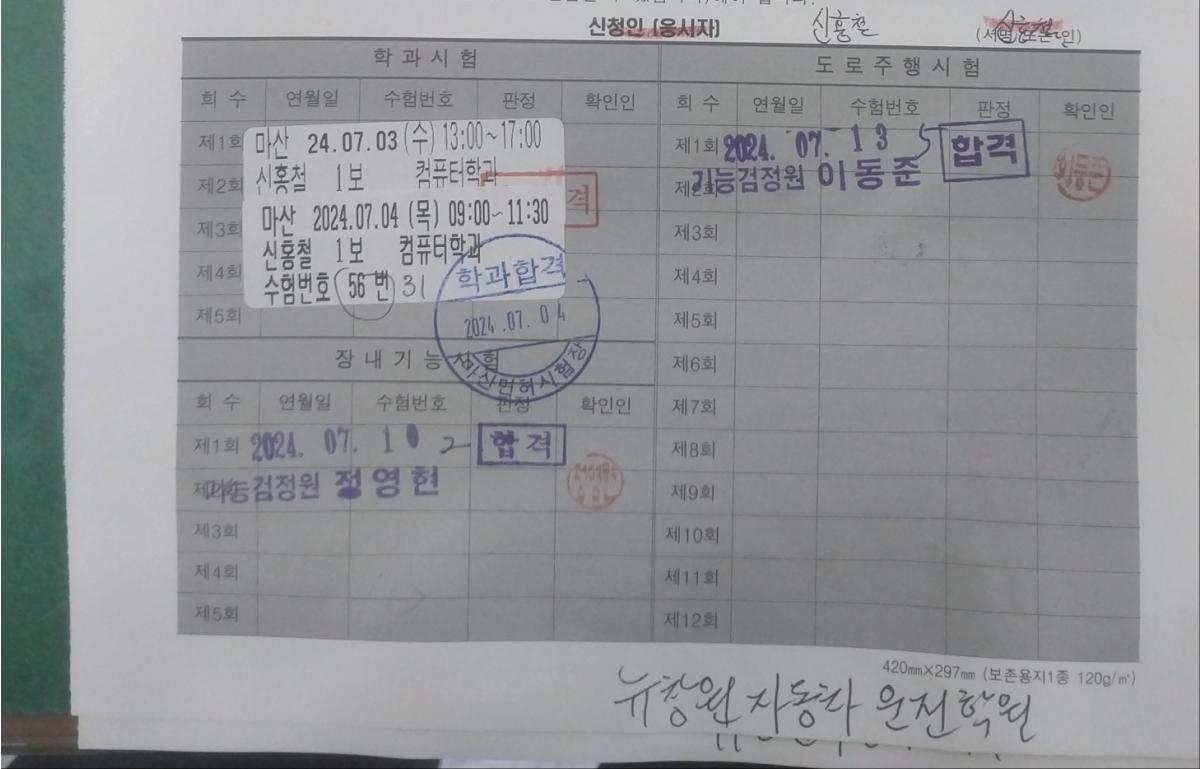 신청인 (응시자) 신홍철
학 과 시 험
회 수 연월일 수험번호 판정 확인인
제1회
마산 24.07.03 (수) 13:00~17:00
신홍철 1보 컴퓨터학과
제2회
격
마산 2024.07.04 (목) 09:00~11:30
제3회
신홍철 1보 컴퓨터학과
제4회
수험번호 56 번 31
학과합격
2024.07.04
마산면허시험장
제5회
장 내 기 능 시 험
회 수 연월일 수험번호 판정 확인인
제1회 2024. 07. 1 합 격
기능검정원 정 영 현
제3회
제4회
제5회
도 로 주 행 시 험
회 수 연월일 수험번호 판정 확인인
제1회 2024. 07. 1 3 합격
제2회 기능검정원 이 동 준
이동준
제3회
제4회
제5회
제6회
제7회
제8회
제9회
제10회
제11회
제12회
420㎜×297㎜ (보존용지1종 120g/㎡)
뉴창원 자동차 운전학원